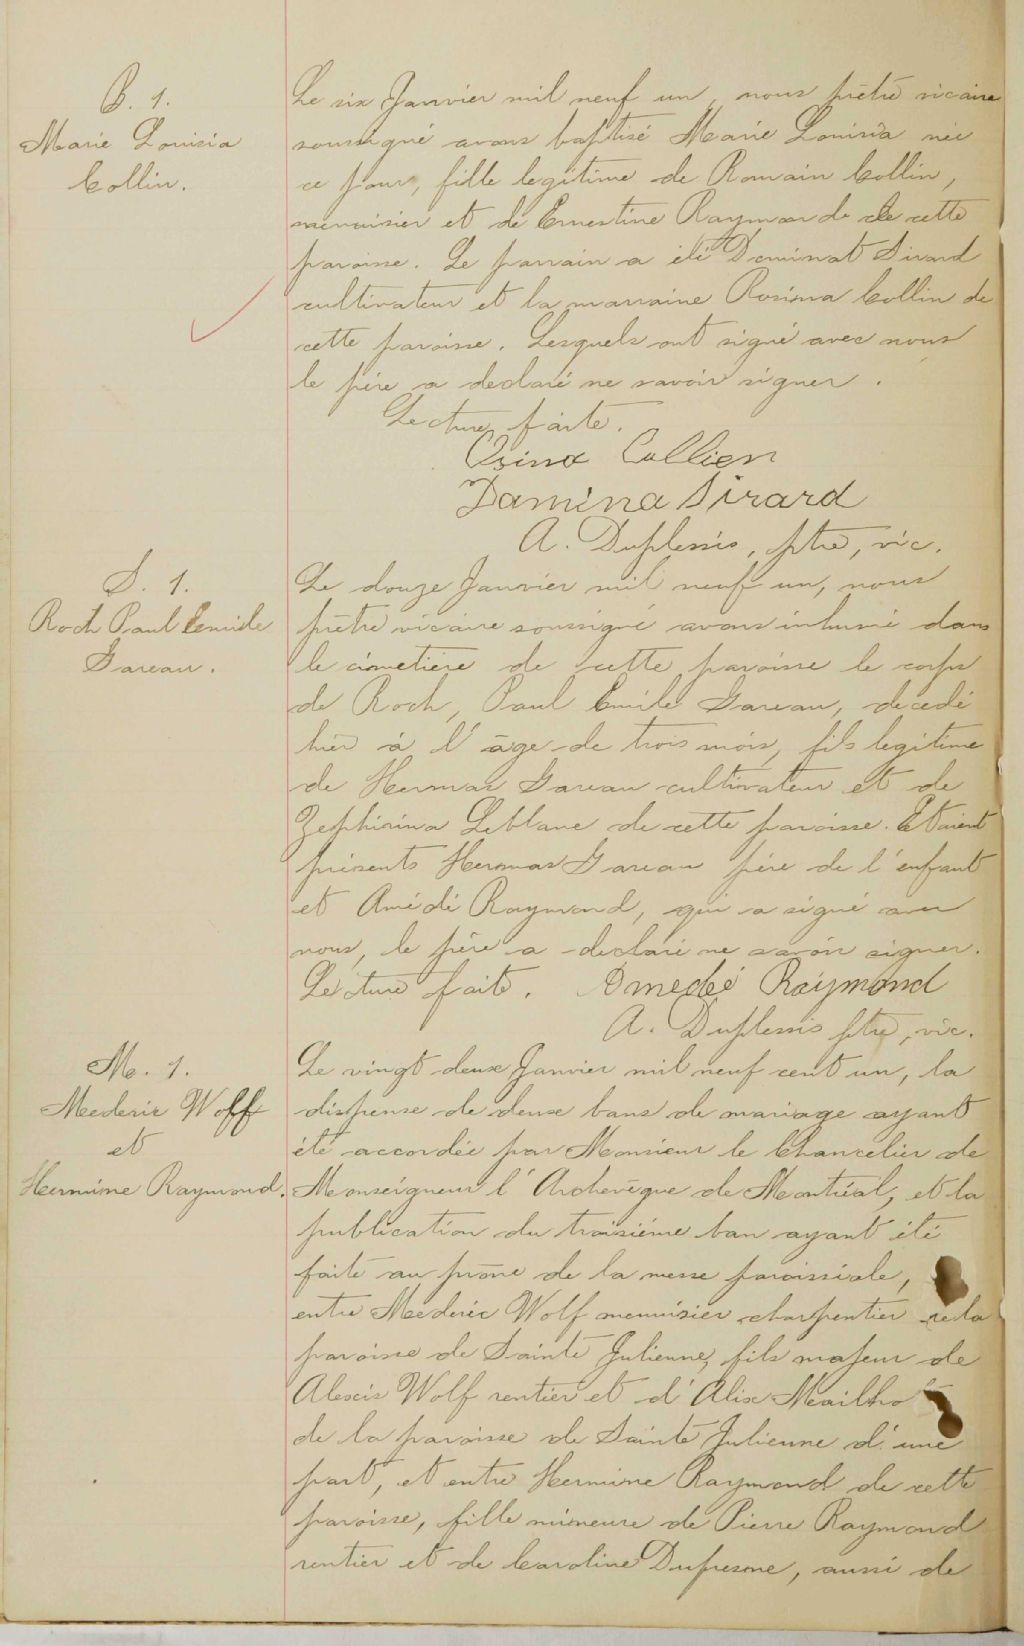 B. 1.
Marie Louisia
Collin.
Le six Janvier mil neuf un, nous prêtre vicaire
soussigné avons baptisé Marie Louisia née
ce jour, fille legitime de Romain Collin,
menuisier et de Ernestine Raymond de cette
paroisse. Le parrain a été Deminat Sirard
cultivateur et la marraine Rosima Collin de
cette paroisse. Lesquels ont signé avec nous
le père a declaré ne savoir signer.
Lecture faite.
Osina Collien
Damina Sirard
A. Duplessis, ptre, vic.
S. 1.
Roch Paul Emile
Gareau.
Le douze Janvier mil neuf un, nous
prêtre vicaire soussigné avons inhumé dans
le cimetière de cette paroisse le corps
de Roch, Paul Emile Gareau, decedé
hier à l'âge de trois mois, fils legitime
de Hermas Gareau cultivateur et de
Zephirina Leblanc de cette paroisse. Etaient
présents Hermas Gareau père de l'enfant
et Amédé Raymond, qui a signé avec
nous, le père a declaré ne savoir signer.
Lecture faite. Amedeé Raymond
A. Duplessis ptre, vic.
M. 1.
Mederic Wolff
et
Hermine Raymond.
Le vingt deux Janvier mil neuf cent un, la
dispense de deux bans de mariage ayant
été accordée par Monsieur le Chancelier de
Monseigneur l'Archevêque de Montréal, et la
publication du troisième ban ayant été
faite au prône de la messe paroissiale,
entre Mederic Wolf menuisier charpentier de la
paroisse de Sainte Julienne, fils majeur de
Alexis Wolf rentier et d'Alix Mailho
de la paroisse de Sainte Julienne d'une
part, et entre Hermine Raymond de cette
paroisse, fille mineure de Pierre Raymond
rentier et de Caroline Dufresne, aussi de